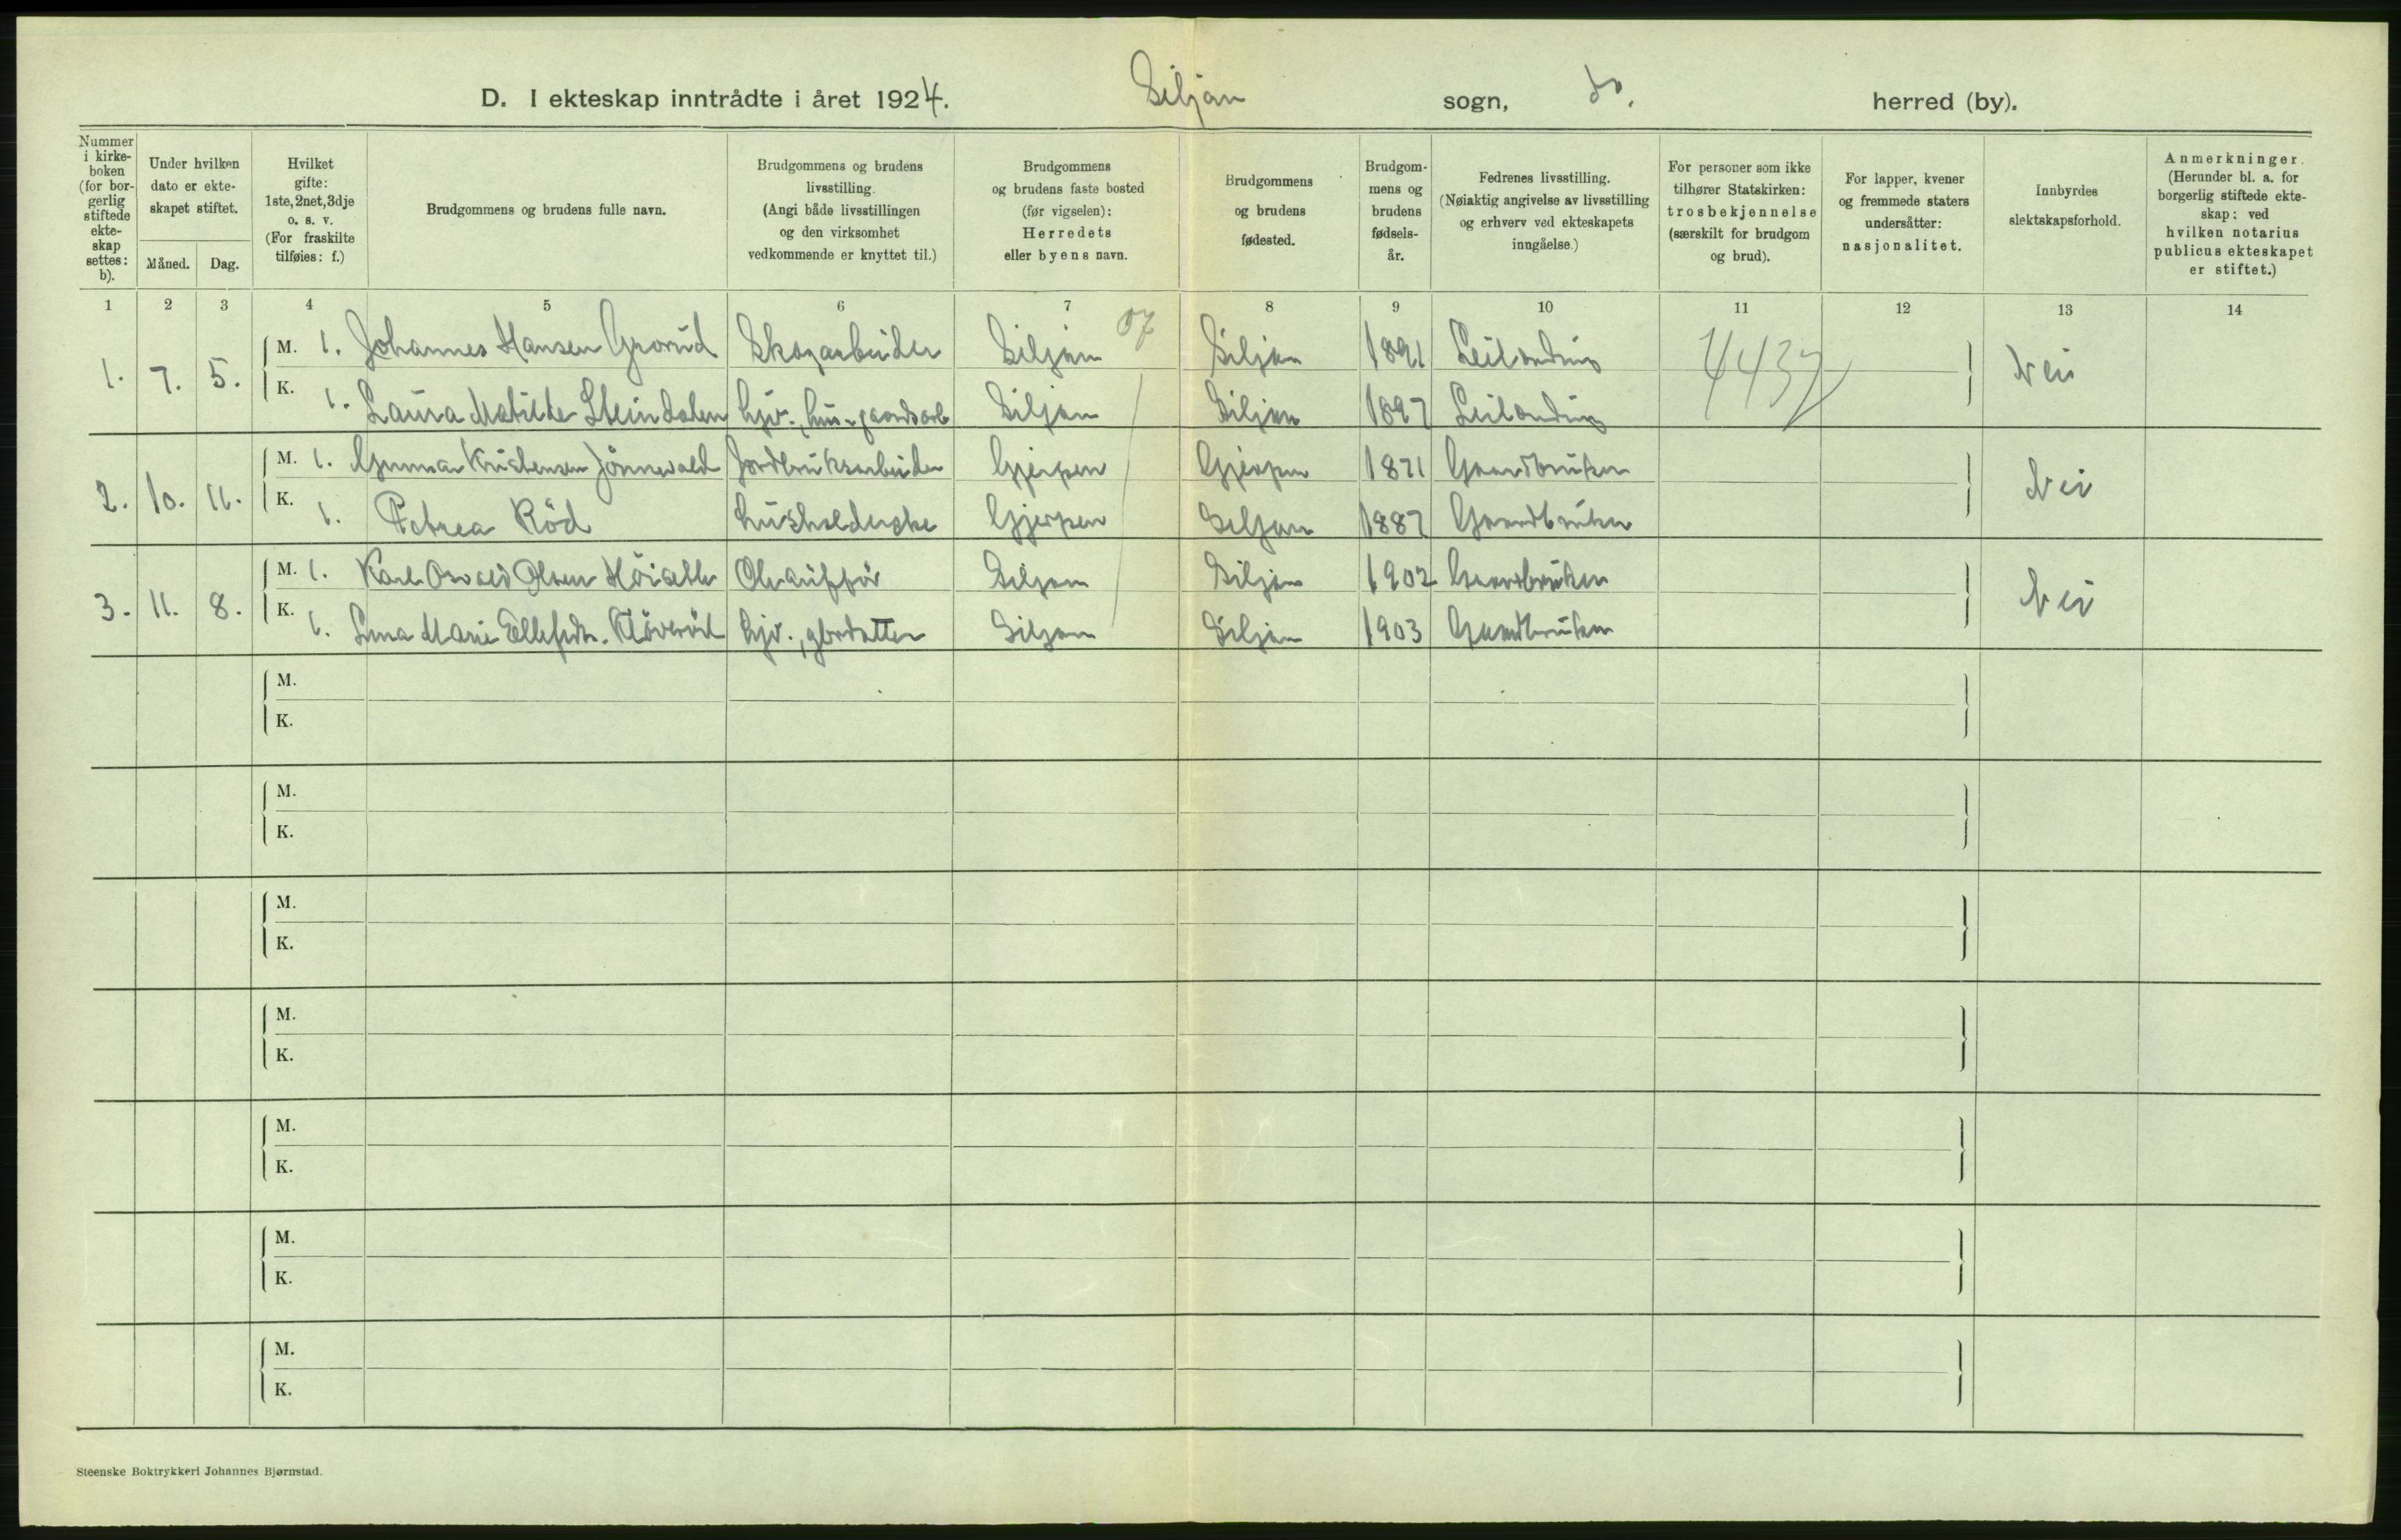 D. I ekteskap inntrådte i året 1924. Siljan sogn, do. herred (by).
Nummer i kirkeboken (for borgerlig stiftede ekteskap settes: b).
Under hvilken dato er ekteskapet stiftet.
Måned. Dag.
Hvilket gifte: 1ste, 2net, 3dje o. s. v. (For fraskilte tilføies: f.)
Brudgommens og brudens fulle navn.
Brudgommens og brudens livsstilling. (Angi både livsstillingen og den virksomhet vedkommende er knyttet til.)
Brudgommens og brudens faste bosted (før vigselen): Herredets eller byens navn.
Brudgommens og brudens fødested.
Brudgommens og brudens fødselsår.
Fedrenes livsstilling. (Nøiaktig angivelse av livsstilling og erhverv ved ekteskapets inngåelse.)
For personer som ikke tilhører Statskirken: trosbekjennelse (særskilt for brudgom og brud).
For lapper, kvener og fremmede staters undersåtter: nasjonalitet.
Innbyrdes slektskapsforhold.
Anmerkninger. (Herunder bl. a. for borgerlig stiftede ekteskap: ved hvilken notarius publicus ekteskapet er stiftet.)
1 2 3 4 5 6 7 8 9 10 11 12 13 14
07
1. 7. 5. M. 1. Johannes Hansen Grorud Skogarbeider Siljan Siljan 1891 Leilending 4437 Nei
K. 1. Laura Matilde Steindalen hjv., hus- gaardsarb Siljan Siljan 1897 Leilending
2. 10. 11. M. 1. Gunnar Kristensen Jønnevald Jordbruksarbeider Gjerpen Gjerpen 1871 Gaardbruker Nei
K. 1. Petrea Röd husholderske Gjerpen Siljan 1887 Gaardbruker
3. 11. 8. M. 1. Karl Osvald Olsen Siljan Siljan 1902 Gaardbruker Nei
K. 1. Lena Marie Ellefsdtr. Kløverød hjv., gbrdatter Siljan Siljan 1903 Gaardbruker
M.
K.
M.
K.
M.
K.
M.
K.
M.
K.
M.
K.
M.
K.
Steenske Boktrykkeri Johannes Bjørnstad.